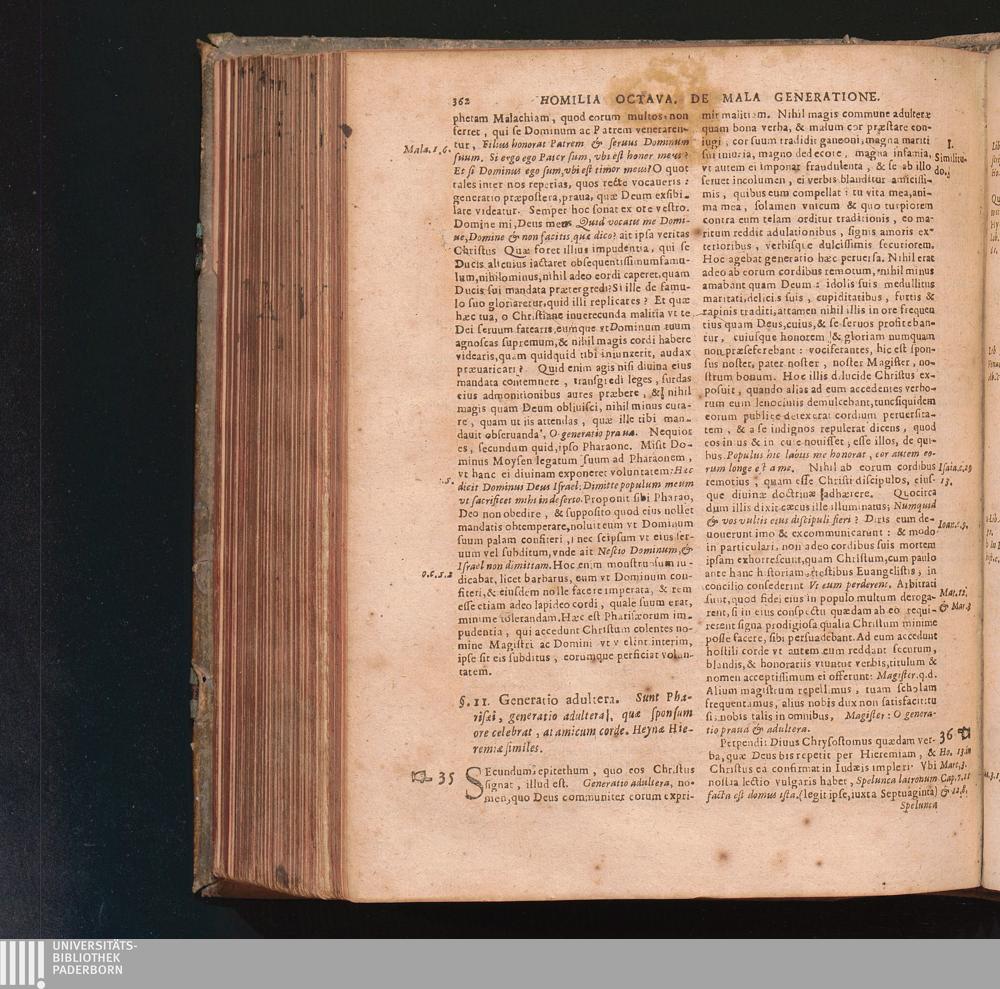 362 HOMILIA OCTAVA. DE MALA GENERATIONE.
phetam Malachiam, quod eorum multos non
ferret, qui se Dominum ac Patrem veneraren-
tur, Filius honorat Patrem & seruus Dominum
Mala.1.6.
suum. Si ergo ego Pater sum, vbi est honor meus?
Et si Dominus ego sum, vbi est timor meus? O quot
tales inter nos reperias, quos recte vocaueris:
generatio præpostera, praua, quæ Deum exsibi-
lare videatur. Semper hoc sonat ex ore vestro.
Domine mi, Deus meus Quid vocatis me Domi-
ne, Domine & non facitis quæ dico? ait ipsa veritas
Christus Quæ foret illius impudentia, qui se
Ducis alicuius iactaret obsequentissimum famu-
lum, nihilominus, nihil adeo cordi caperet, quam
Ducis sui mandata prætergredi? Si ille de famu-
lo suo gloriaretur, quid illi replicares? Et quæ
hæc tua, o Christiane inuerecunda malitia vt te
Dei seruum fatearis, eumque vt Dominum tuum
agnoscas supremum, & nihil magis cordi habere
videaris, quam quidquid tibi iniunxerit, audax
præuaricari? Quid enim agis nisi diuina eius
mandata contemnere, transgredi leges, surdas
eius admonitionibus aures præbere, & nihil
magis quam Deum obliuisci, nihil minus cura-
re, quam ut iis attendas, quæ ille tibi man-
dauit obseruanda, O generatio praua. Nequior
es, secundum quid, ipso Pharaone. Misit Do-
minus Moysen legatum suum ad Pharaonem,
vt hanc ei diuinam exponeret voluntatem: Hæc
dicit Dominus Deus Israel: Dimitte populum meum
.5.
vt sacrificet mihi in deserto. Proponit sibi Pharao,
Deo non obedire, & supposito quod eius nollet
mandatis obtemperare, noluit eum vt Dominum
suum palam confiteri, nec seipsum vt eius ser-
uum vel subditum, vnde ait Nescio Dominum, &
Israel non dimittam. Hoc enim monstruosum iu-
dicabat, licet barbarus, eum vt Dominum con-
fiteri, & eiusdem nolle facere imperata, & rem
esse etiam adeo lapideo cordi, quale suum erat,
minime tolerandam. Hæc est Pharisæorum im-
pudentia, qui accedunt Christum colentes no-
mine Magistri ac Domini vt velint interim,
ipse sit eis subditus, eorumque perficiat volun-
tatem.
§. II. Generatio adultera. Sunt Pha-
risæi, generatio adultera, quæ sponsum
ore celebrat, at amicum corde. Heynæ Hie-
remiæ similes.
35 SEcundum epitethum, quo eos Christus
signat, illud est. Generatio adultera, no-
men, quo Deus communiter eorum expri-
mit malitiam. Nihil magis commune adulteræ
quam bona verba, & malum cor præstare con-
iugi, cor suum tradidit ganeoni, magna mariti
I.
sui iniuria, magno dedecore, magna infamia,
Similitu-
vt autem ei imponat fraudulenta, & se ab illo
do.
seruet incolumen, ei verbis blanditur amicissi-
mis, quibus eum compellat: tu vita mea, ani-
ma mea, solamen vnicum & quo turpiorem
contra eum telam orditur traditionis, eo ma-
ritum reddit adulationibus, signis amoris ex-
terioribus, verbisque dulcissimis securiorem.
Hoc agebat generatio hæc peruersa. Nihil erat
adeo ab eorum cordibus remotum, nihil minus
amabant quam Deum: idolis suis medullitus
maritati, deliciis suis, cupiditatibus, furtis &
rapinis traditi, attamen nihil illis in ore frequen
tius quam Deus, cuius, & se seruos profiteban-
tur, cuiusque honorem & gloriam numquam
non præseferebant: vociferantes, hic est spon-
sus noster, pater noster, noster Magister, no-
strum bonum. Hoc illis dilucide Christus ex-
posuit, quando alias ad eum accedentes verbo-
rum eum lenociniis demulcebant, tunc siquidem
eorum publice detexerat cordium peruersita-
tem, & a se indignos repulerat dicens, quod
eos intus & in cute nouisset, esse illos, de qui-
bus. Populus hic labiis me honorat, cor autem eo-
rum longe est a me. Nihil ab eorum cordibus
Isaiæ.c.29
remotius, quam esse Christi discipulos, eius-
13.
que diuinæ doctrinæ adhærere. Quocirca
dum illis dixit cæcus ille illuminatus; Numquid
& vos vultis eius discipuli fieri? Diris eum de-
Ioan.c.9.
uouerunt imo & excommunicarunt: & modo
in particulari, non adeo cordibus suis mortem
ipsam exhorrescunt, quam Christum, cum paulo
ante hanc historiam, testibus Euangelistis, in
concilio consederint Vt eum perderent. Arbitrati
sunt, quod fidei eius in populo multum deroga-
Mat.12.
rent, si in eius conspectu quædam ab eo requi-
& Mar.3
rerent signa prodigiosa qualia Christum minime
posse facere, sibi persuadebant. Ad eum accedunt
hostili corde vt autem eum reddant securum,
blandis, & honorariis vtuntur verbis, titulum &
nomen acceptissimum ei offerunt: Magister. q.d.
Alium magistrum repellimus, tuam scholam
frequentamus, alius nobis dux non satisfacit: tu
sis nobis talis in omnibus, Magister: O genera-
tio praua & adultera.
36
Perpendit Diuus Chrysostomus quædam ver-
ba, quæ Deus bis repetit per Hieremiam, &
Ho. 13. in
Christus ea confirmat in Iudæis impleri: Vbi
Marc.3.
nostra lectio vulgaris habet, Spelunca latronum
Cap.7.11
facta est domus ista. (legit ipse, iuxta Septuaginta)
& 12.8.
Spelunca
UNIVERSITÄTS-
BIBLIOTHEK
PADERBORN